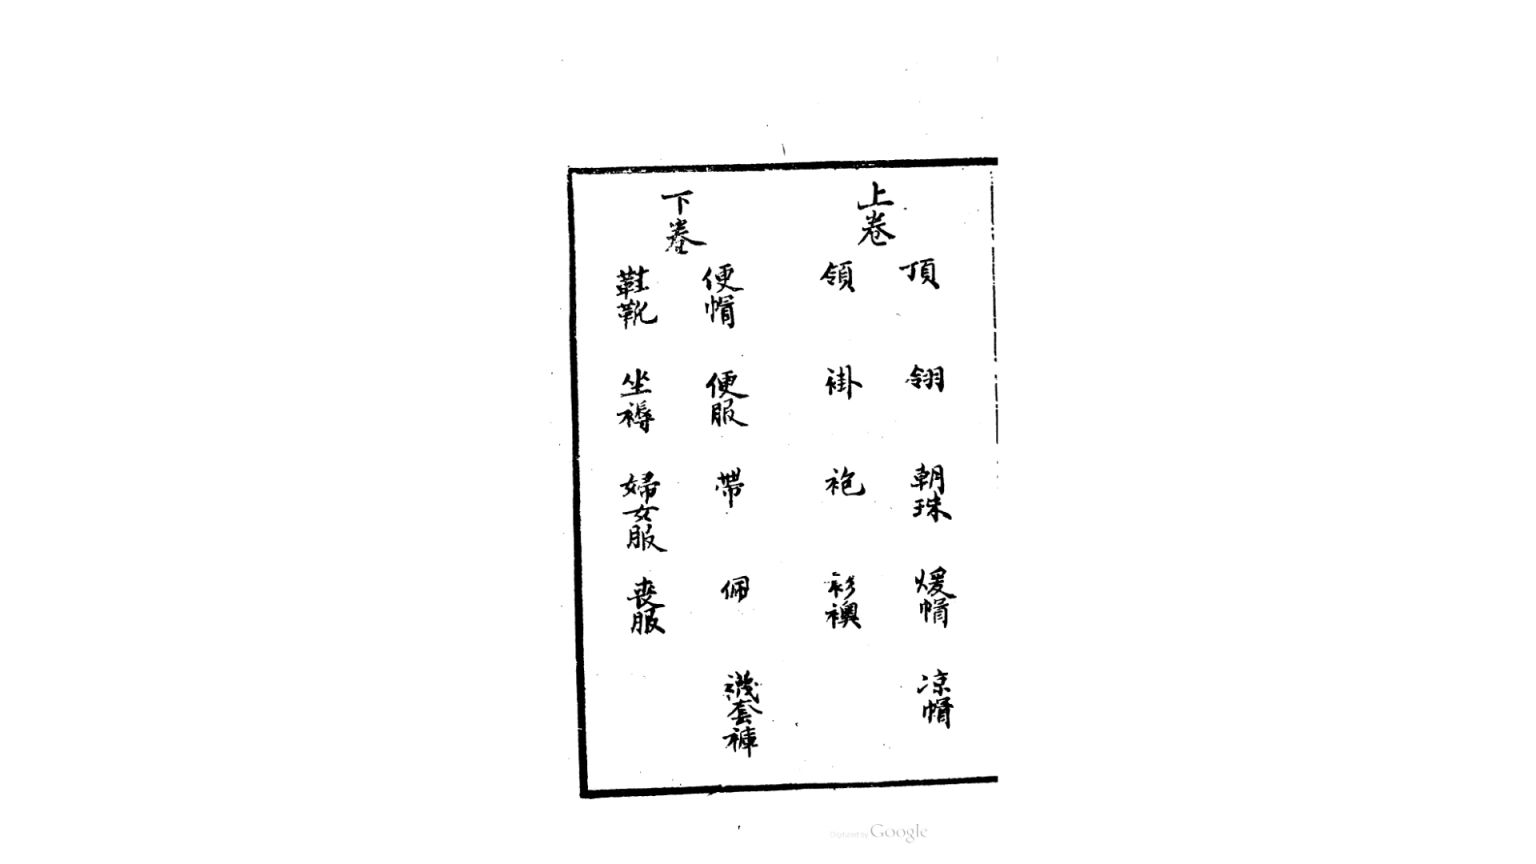 上卷
頂 翎 朝珠 煖帽 凉帽
領 褂 袍 衫襖
下卷
便帽 便服 帶 佩 襪套褲
鞋靴 坐褥 婦女服 喪服
Digitized by Google